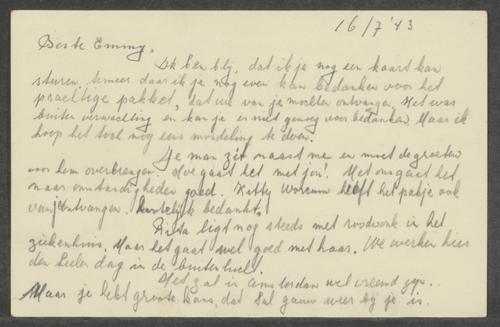 16/7 '43
Beste Emmy,
Ik ben blij, dat ik je nog een kaart kan
sturen, temeer daar ik je nog even kan bedanken voor het
prachtige pakket, dat we van je mochten ontvangen. Het was
buiten verwachting en kan je er niet genoeg voor bedanken. Maar ik
hoop het toch nog eens mondeling te doen.
Je man zit naast me en moet de groeten
voor hem overbrengen. Hoe gaat het met jou? Met ons gaat het
naar omstandigheden goed. Kitty heeft het pakje ook
van je ontvangen. Hartelijk bedankt.
ligt nog steeds met roodvonk in het
ziekenhuis. Maar het gaat wel goed met haar. We werken hier
den heelen dag in de buitenlucht.
Het zal in Amsterdam wel vreemd zijn.
Maar je hebt groote kans, dat Sal gauw weer bij je is.